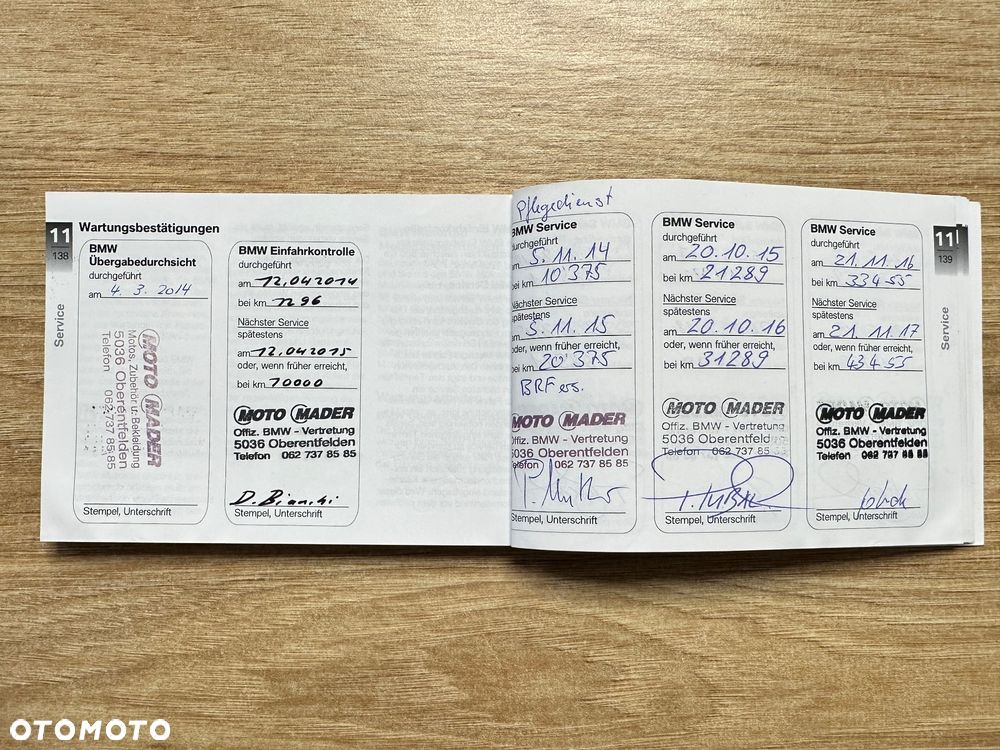 11
138
Service
Wartungsbestätigungen
BMW
Übergabedurchsicht
durchgeführt
am 4. 3. 2014
MOTO MADER
Motos, Zubehör u. Bekleidung
5036 Oberentfelden
Telefon 062 737 85 85
Stempel, Unterschrift
BMW Einfahrkontrolle
durchgeführt
am 12.04 2014
bei km 1296
Nächster Service
spätestens
am 12.04 2015
oder, wenn früher erreicht,
bei km 10000
MOTO MADER
Offiz. BMW - Vertretung
5036 Oberentfelden
Telefon 062 737 85 85
D. Bianchi
Stempel, Unterschrift
Pflegedienst
BMW Service
durchgeführt
am 5. 11. 14
bei km 10'375
Nächster Service
spätestens
am 5. 11. 15
oder, wenn früher erreicht,
bei km 20'375
BRF
MOTO MADER
Offiz. BMW - Vertretung
5036 Oberentfelden
Telefon 062 737 85 85
Stempel, Unterschrift
BMW Service
durchgeführt
am 20.10.15
bei km 21289
Nächster Service
spätestens
am 20.10.16
oder, wenn früher erreicht,
bei km 31289
MOTO MADER
Offiz. BMW - Vertretung
5036 Oberentfelden
Telefon 062 737 85 85
Stempel, Unterschrift
BMW Service
durchgeführt
am 21.11.16
bei km 33455
Nächster Service
spätestens
am 21.11.17
oder, wenn früher erreicht,
bei km 43455
MOTO MADER
Offiz. BMW - Vertretung
5036 Oberentfelden
Telefon 062 737 85 85
Stempel, Unterschrift
11
139
Service
OTOMOTO